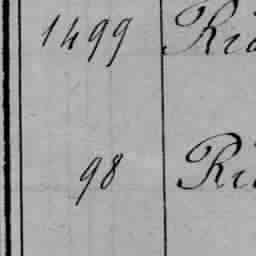 1499 Ri
98 Ri